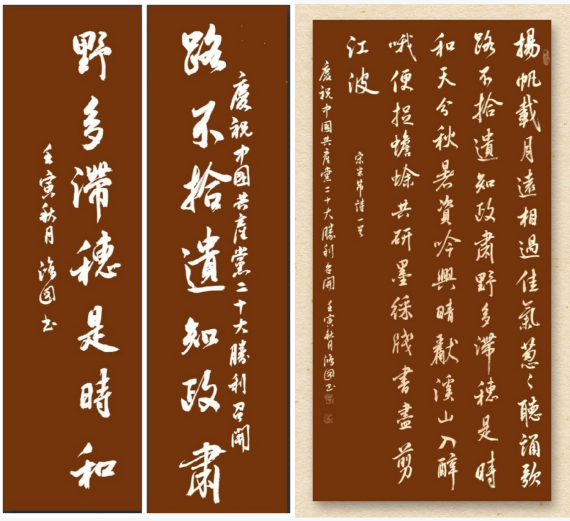 路不拾遺知政肅
慶祝中国共產黨二十大勝利召開
野多滯穗是時和
壬寅秋月 国書
揚帆載月遠相過佳氣蔥々聽誦歌
路不拾遺知政肅野多滯穗是時
和天分秋暑資吟興晴獻溪山入醉
哦便捉蟾蜍共研墨綵牋書盡剪
江波
宋米芾詩一首
慶祝中国共產黨二十大勝利召開 壬寅秋月 国書